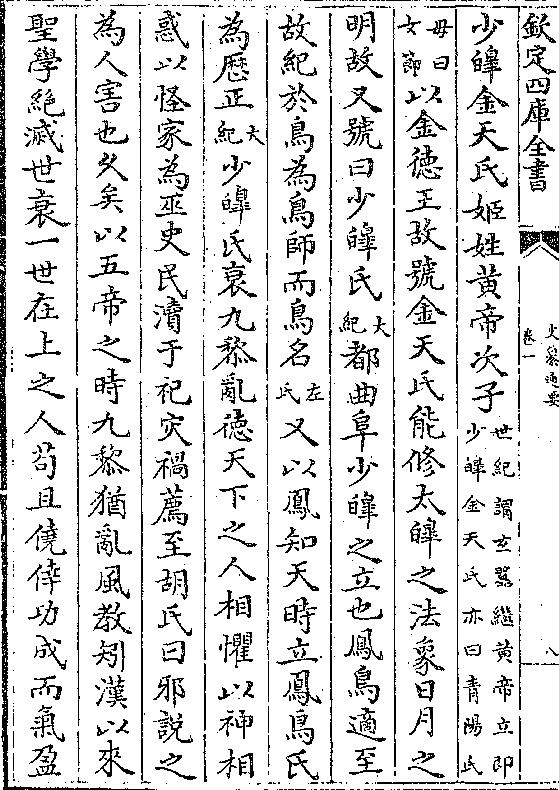 欽定四庫全書
史纂通要
卷一
八
少皥金天氏姬姓黄帝次子世紀謂玄囂繼黄帝立即少皥金天氏亦曰青陽氏
母曰女節以金徳王故號金天氏能修太皥之法象日月之
明故又號曰少皥氏大紀都曲阜少皥之立也鳳鳥適至
故紀於鳥為鳥師而鳥名左氏又以鳳知天時立鳳鳥氏
為厯正大紀少皥氏衰九黎亂徳天下之人相懼以神相
惑以怪家為巫史民瀆于祀灾禍薦至胡氏曰邪説之
為人害也乆矣以五帝之時九黎猶亂風教矧漢以來
聖學絶滅世衰一世在上之人苟且僥倖功成而氣盈